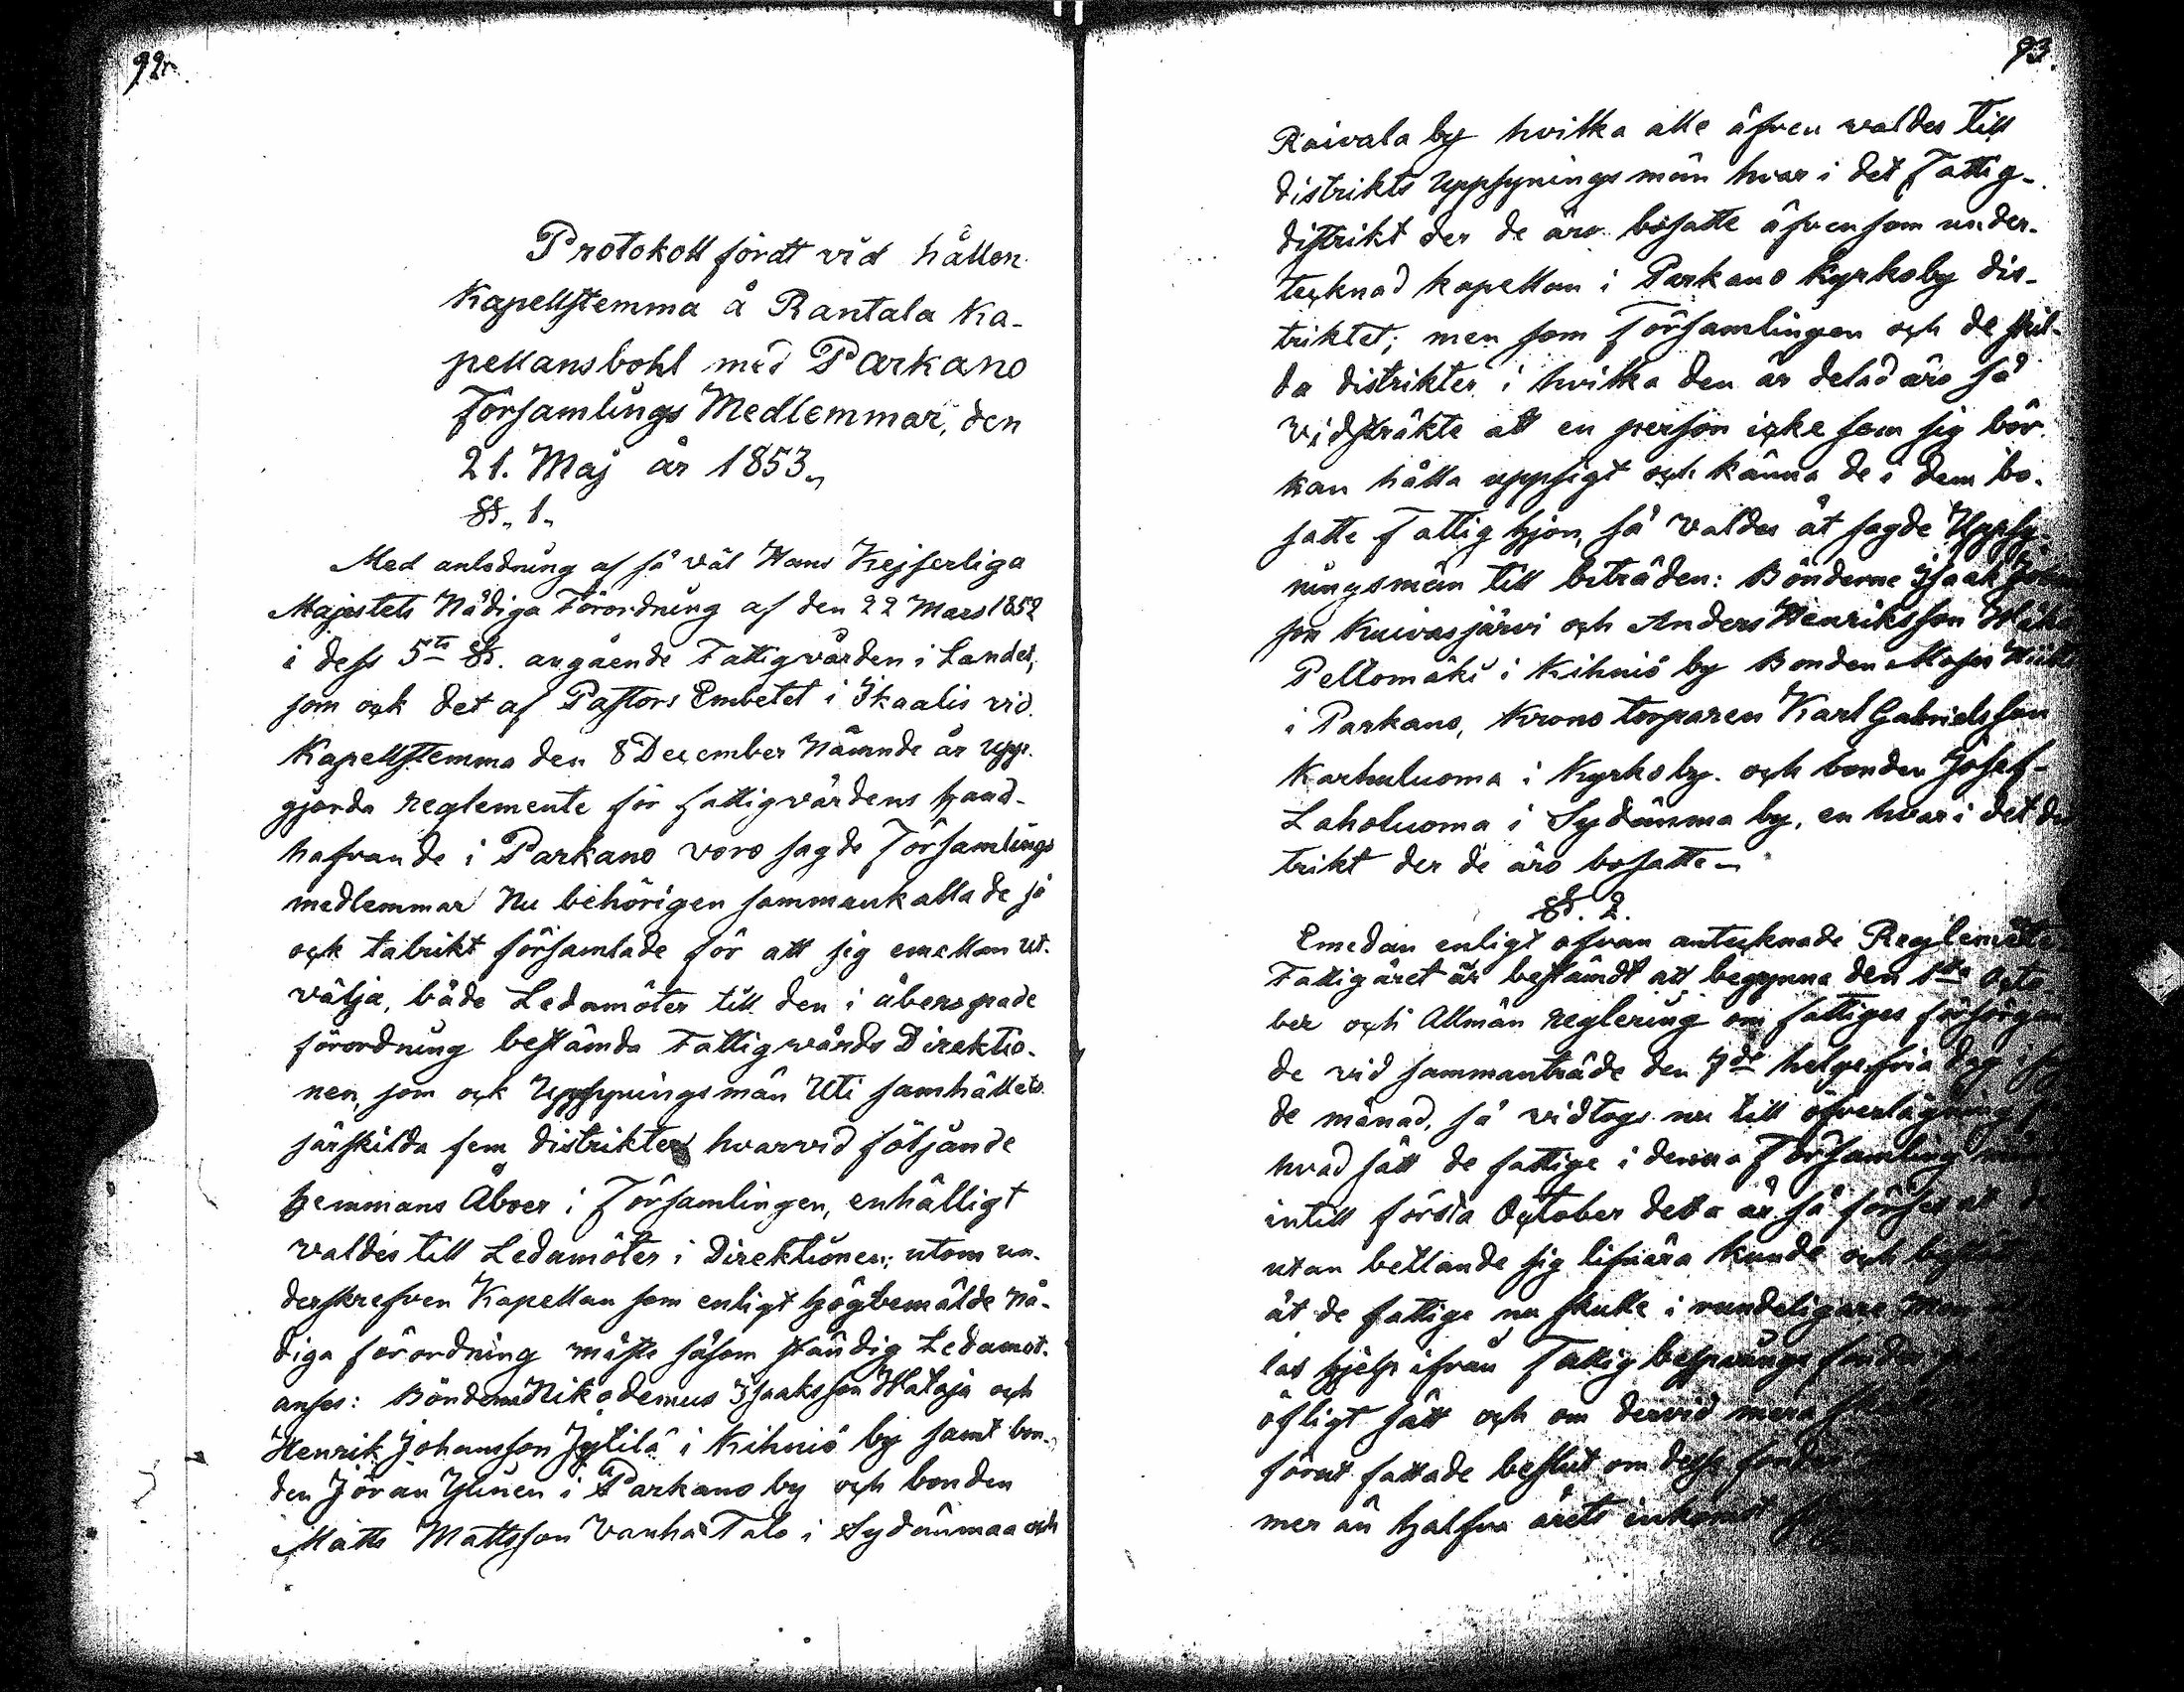 92.
Protokoll fördt vid hållen
Kapellstemma å Rantala Ka-
pellansbohl med Parkano
Församlings Medlemmar, den
21. Maj år 1853.
§. 1.
Med anledning af så väl Hans Kejserliga
Majestets Nådiga Förordning af den 22 Mars 1852
i dess 5te §. angående Fattigvården i Landet,
som ock det af Pastors Embetet i Ikaalis vid
Kapellstemma den 8 December Nämnde år upp-
gjorda reglemente för fattigvårdens hand-
hafvande i Parkano voro sagde Församlings
medlemmar Nu behörigen sammankallade så
ock talrikt församlade för att sig emellan ut-
välja, både Ledamöter till den i åberopade
förordning bestämda Fattigvårds Direktio-
nen, som ock Uppsyningsmän Uti samhällets
särskilda fem distrikter hvarvid följande
hemmans Åboer i Församlingen, enhälligt
valdes till Ledamöter i Direktionen; utom un-
derskrefven Kapellan som enligt högbemälde Nå-
diga förordning måste såsom ständig Ledamot
anses: Bönderne Nikodemus Isaksson Hataja och
Henrik Johansson Jytilä i Kihniö by samt bon-
den Jöran Ylinen i Parkano by och bonden
Matts Mattsson Vanha Talo i Sydänmaa och
93.
Raivala by hvilka alle äfven valdes till
distrikts Uppsyningsmän hvar i det Fattig-
distrikt der de äro bosatte äfvensom under-
tecknad kapellan i Parkano Kyrkoby dis-
triktet; men som Församlingen och de skil-
da distrikter i hvilka den är delad äro så
vidsträkte att en person icke som sig bör
kan hålla uppsigt och känna de i dem bo-
satte Fattighjon, så valdes åt sagde Uppsy-
ningsmän till biträden: Bönderne Isaak
son Kuivasjärvi och Anders Henriksson
Peltomäki i Kihniö by Bonden Moses
i Parkano, Krono torparen Karl Gabrielsson
Karhuluoma i Kyrkoby. och bonden Josef
Laholuoma i Sydänma by, en hvar i det dis
trikt der de äro bosatte
§. 2.
Emedan enligt ofvan antecknade Reglemente
Fattigåret är bestämdt att begynna den 1sta Octo
ber och Allmän reglering om fattiges försörgan
de vid sammanträde den 7de helgefria dag i
de månad, så vidtogs nu till öfverläggning
hvad sätt de fattige i denna Församling
intill första October detta år så förses at
utan bettlande sig lifnära kunde och
åt de fattige nu skulle i
las hjelp ifrån Fattig besparings fonden
öfligt sätt och om dervid mera
förut fattade beslut om dess
mer än halfva årets inkomst